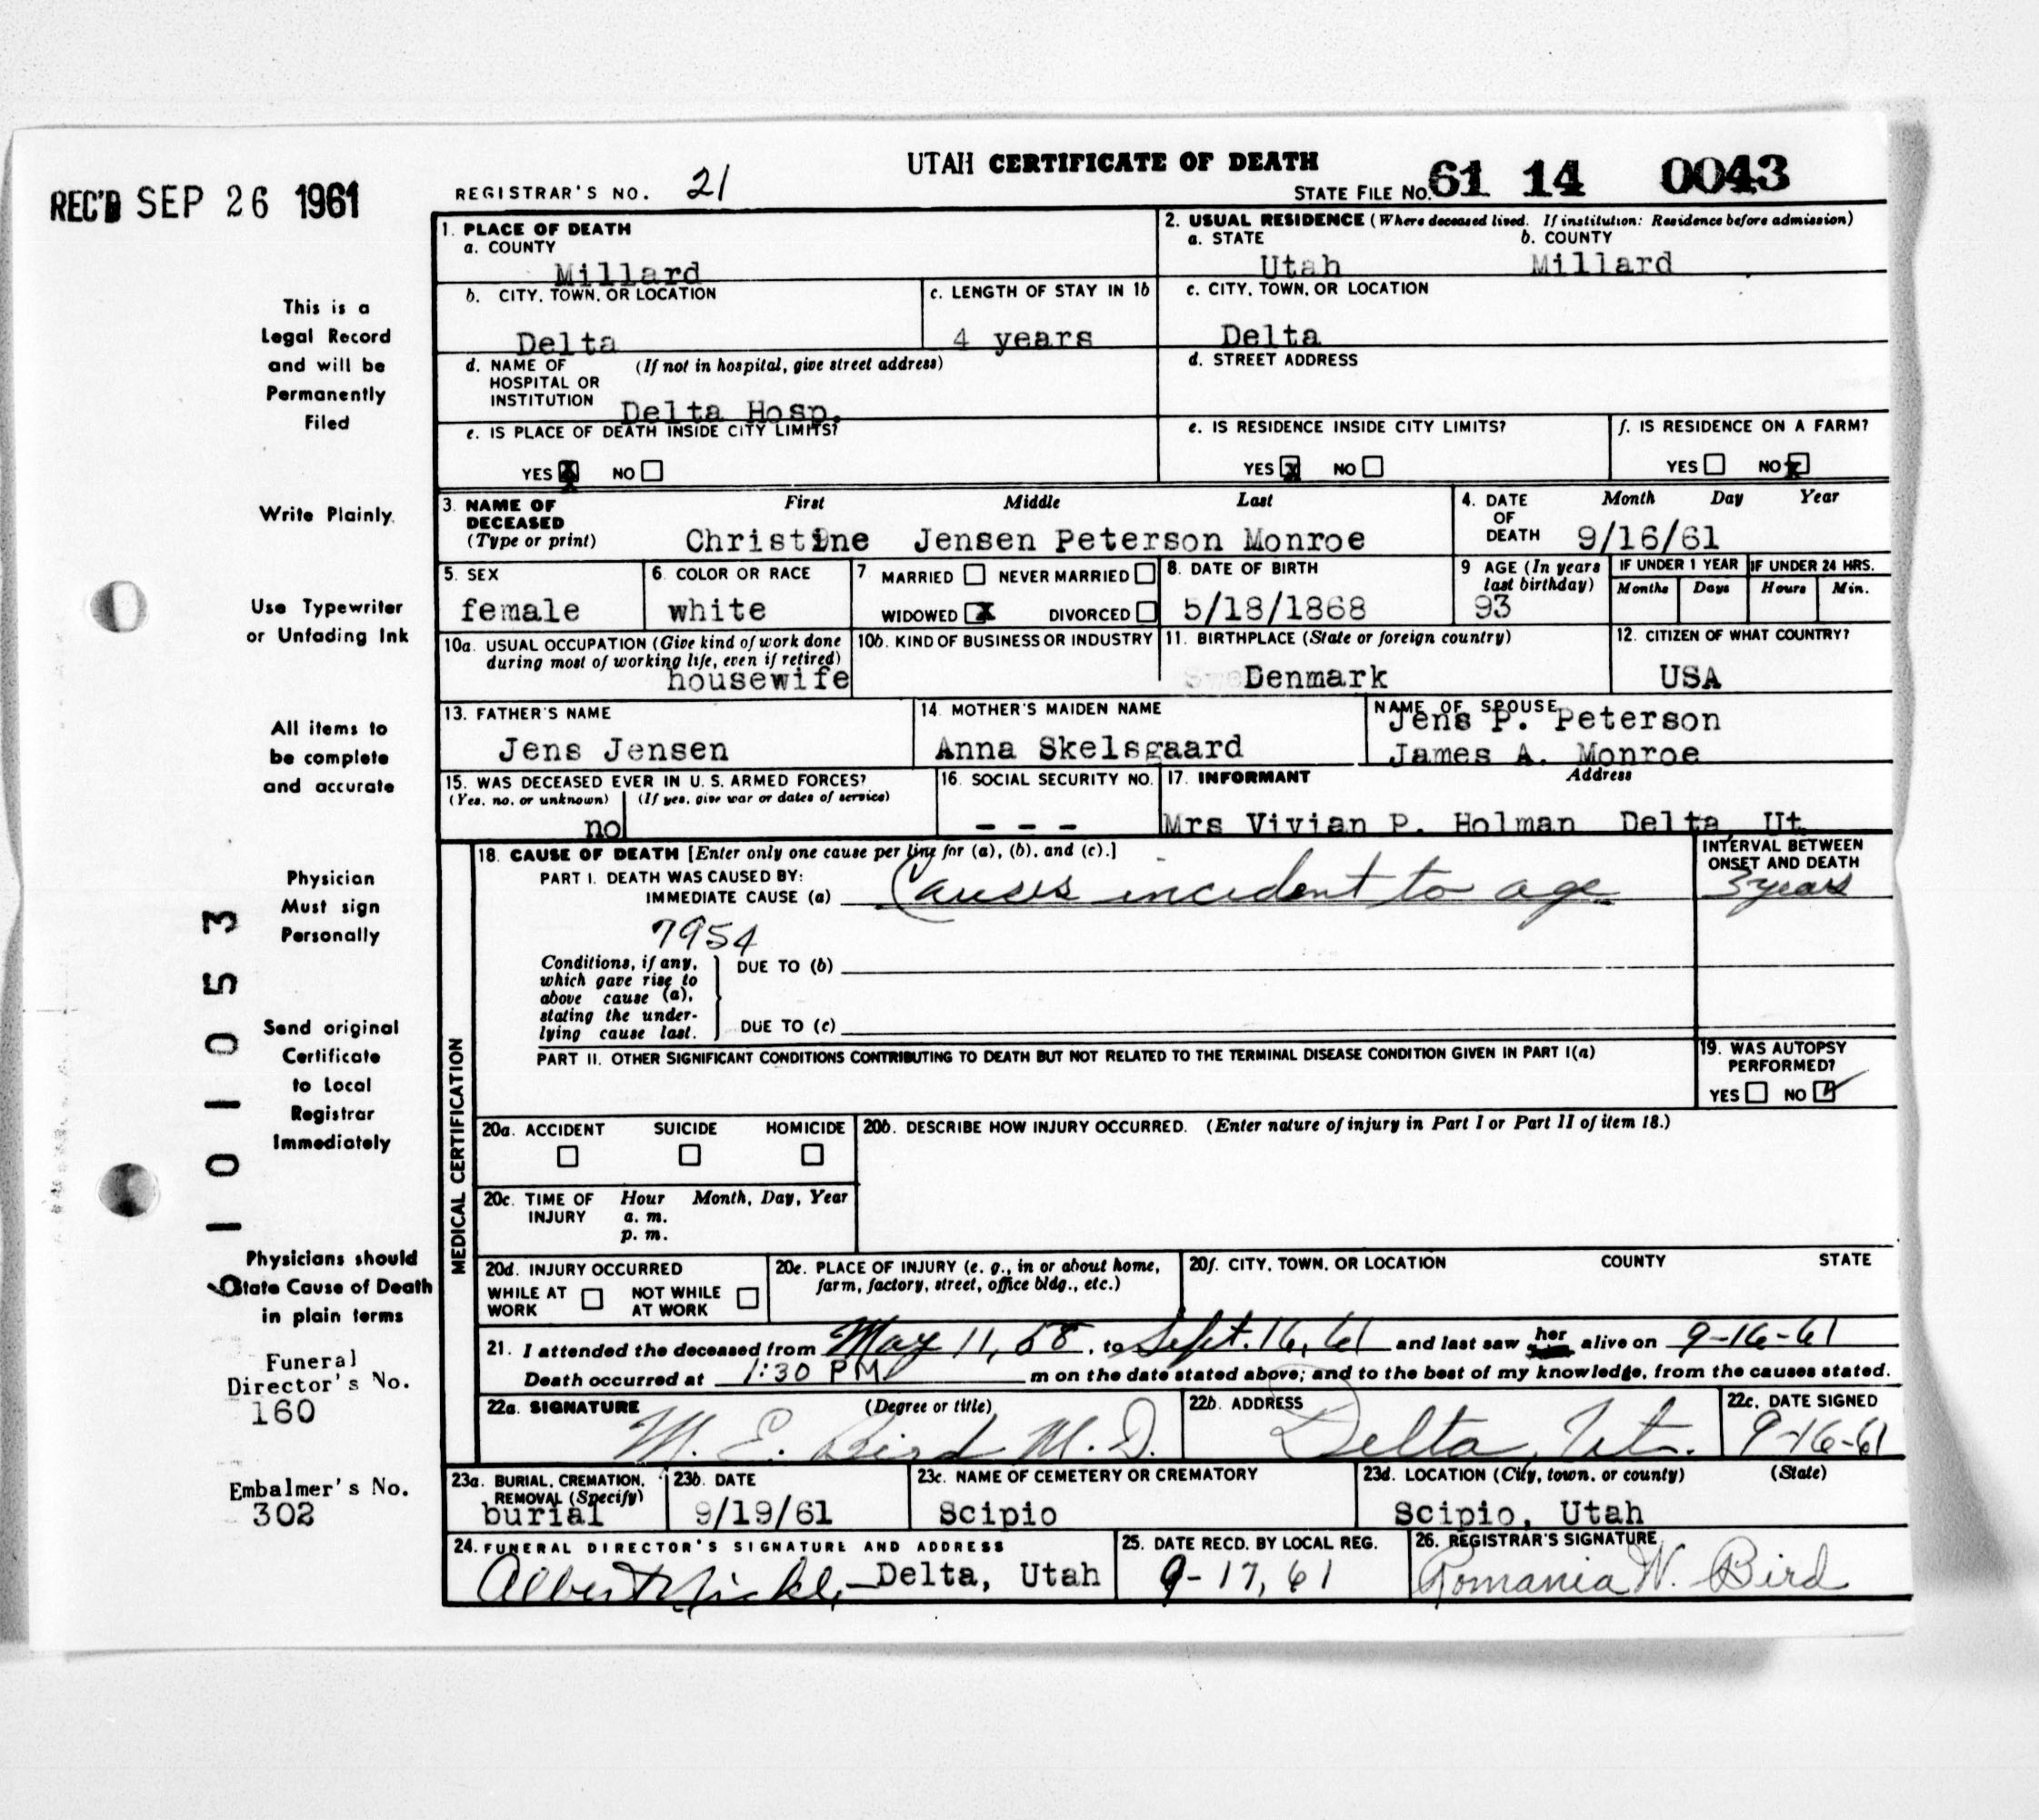 REC'D SEP 26 1961
UTAH CERTIFICATE OF DEATH
REGISTRAR'S NO. 21
STATE FILE NO. 61 14 0043
This is a
Legal Record
and will be
Permanently
Filed
Write Plainly.
Use Typewriter
or Unfading Ink
All items to
be complete
and accurate
Physician
Must sign
Personally
Send original
Certificate
to Local
Registrar
Immediately
Physicians should
State Cause of Death
in plain terms
Funeral
Director's No.
160
Embalmer's No.
302
101053
1. PLACE OF DEATH
a. COUNTY
Millard
2. USUAL RESIDENCE (Where deceased lived. If institution: Residence before admission)
a. STATE b. COUNTY
Utah Millard
b. CITY, TOWN, OR LOCATION
Delta
c. LENGTH OF STAY IN 1b
4 years
c. CITY, TOWN, OR LOCATION
Delta
d. NAME OF (If not in hospital, give street address)
HOSPITAL OR
INSTITUTION Delta Hosp.
d. STREET ADDRESS
e. IS PLACE OF DEATH INSIDE CITY LIMITS?
YES X NO
e. IS RESIDENCE INSIDE CITY LIMITS?
YES x NO
f. IS RESIDENCE ON A FARM?
YES NO x
3. NAME OF First Middle Last
DECEASED
(Type or print) Christine Jensen Peterson Monroe
4. DATE Month Day Year
OF
DEATH 9/16/61
5. SEX
female
6. COLOR OR RACE
white
7. MARRIED NEVER MARRIED
WIDOWED x DIVORCED
8. DATE OF BIRTH
5/18/1868
9 AGE (In years
last birthday)
93
IF UNDER 1 YEAR
Months Days
IF UNDER 24 HRS.
Hours Min.
10a. USUAL OCCUPATION (Give kind of work done
during most of working life, even if retired)
housewife
10b. KIND OF BUSINESS OR INDUSTRY
11. BIRTHPLACE (State or foreign country)
Denmark
12. CITIZEN OF WHAT COUNTRY?
USA
13. FATHER'S NAME
Jens Jensen
14. MOTHER'S MAIDEN NAME
Anna Skelsgaard
NAME OF SPOUSE
Jens P. Peterson
James A. Monroe
15. WAS DECEASED EVER IN U. S. ARMED FORCES?
(Yes, no, or unknown) (If yes, give war or dates of service)
no
16. SOCIAL SECURITY NO.
- - -
17. INFORMANT Address
Mrs Vivian P. Holman Delta, Ut
MEDICAL CERTIFICATION
18. CAUSE OF DEATH [Enter only one cause per line for (a), (b), and (c).]
PART I. DEATH WAS CAUSED BY:
IMMEDIATE CAUSE (a) Causes incident to age
INTERVAL BETWEEN
ONSET AND DEATH
3 years
7954
Conditions, if any,
which gave rise to
above cause (a),
stating the under-
lying cause last.
DUE TO (b)
DUE TO (c)
PART II. OTHER SIGNIFICANT CONDITIONS CONTRIBUTING TO DEATH BUT NOT RELATED TO THE TERMINAL DISEASE CONDITION GIVEN IN PART I(a)
19. WAS AUTOPSY
PERFORMED?
YES NO
20a. ACCIDENT SUICIDE HOMICIDE
20b. DESCRIBE HOW INJURY OCCURRED. (Enter nature of injury in Part I or Part II of item 18.)
20c. TIME OF Hour Month, Day, Year
INJURY a. m.
p. m.
20d. INJURY OCCURRED
WHILE AT NOT WHILE
WORK AT WORK
20e. PLACE OF INJURY (e. g., in or about home,
farm, factory, street, office bldg., etc.)
20f. CITY, TOWN, OR LOCATION COUNTY STATE
21. I attended the deceased from May 11, 58, to Sept. 16, 61 and last saw her alive on 9-16-61
Death occurred at 1:30 PM m on the date stated above; and to the best of my knowledge, from the causes stated.
22a. SIGNATURE (Degree or title)
M. E. Bird M. D.
22b. ADDRESS
Delta, Ut.
22c. DATE SIGNED
9-16-61
23a. BURIAL, CREMATION,
REMOVAL (Specify)
burial
23b. DATE
9/19/61
23c. NAME OF CEMETERY OR CREMATORY
Scipio
23d. LOCATION (City, town, or county) (State)
Scipio, Utah
24. FUNERAL DIRECTOR'S SIGNATURE AND ADDRESS
Albert Nickle - Delta, Utah
25. DATE RECD. BY LOCAL REG.
9-17, 61
26. REGISTRAR'S SIGNATURE
Romania W. Bird